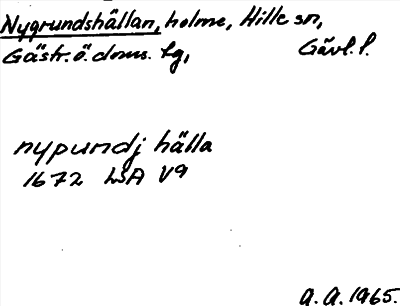 Nygrundshällan, holme, Hille sn,
Gästr. ö. doms. tg, Gävl. l.
nypundj hälla
1672 LSA V9
A. A. 1965.